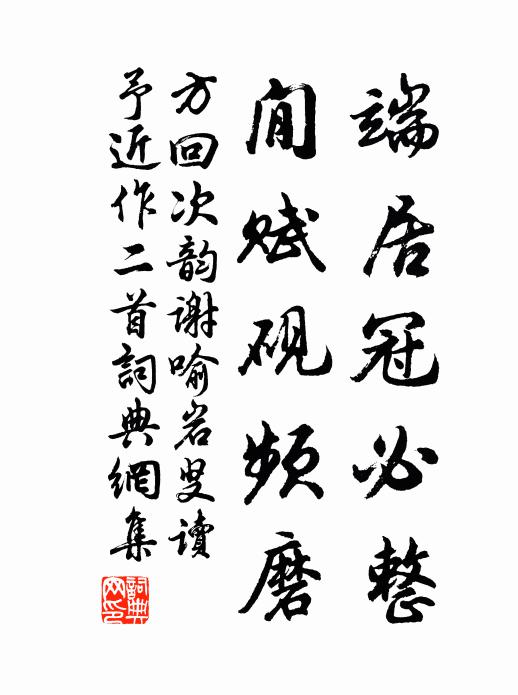 端居冠必整
閒赋砚频磨
方回次韵谢喻岩叟讀
予近作二首詞典網集
詞典网印